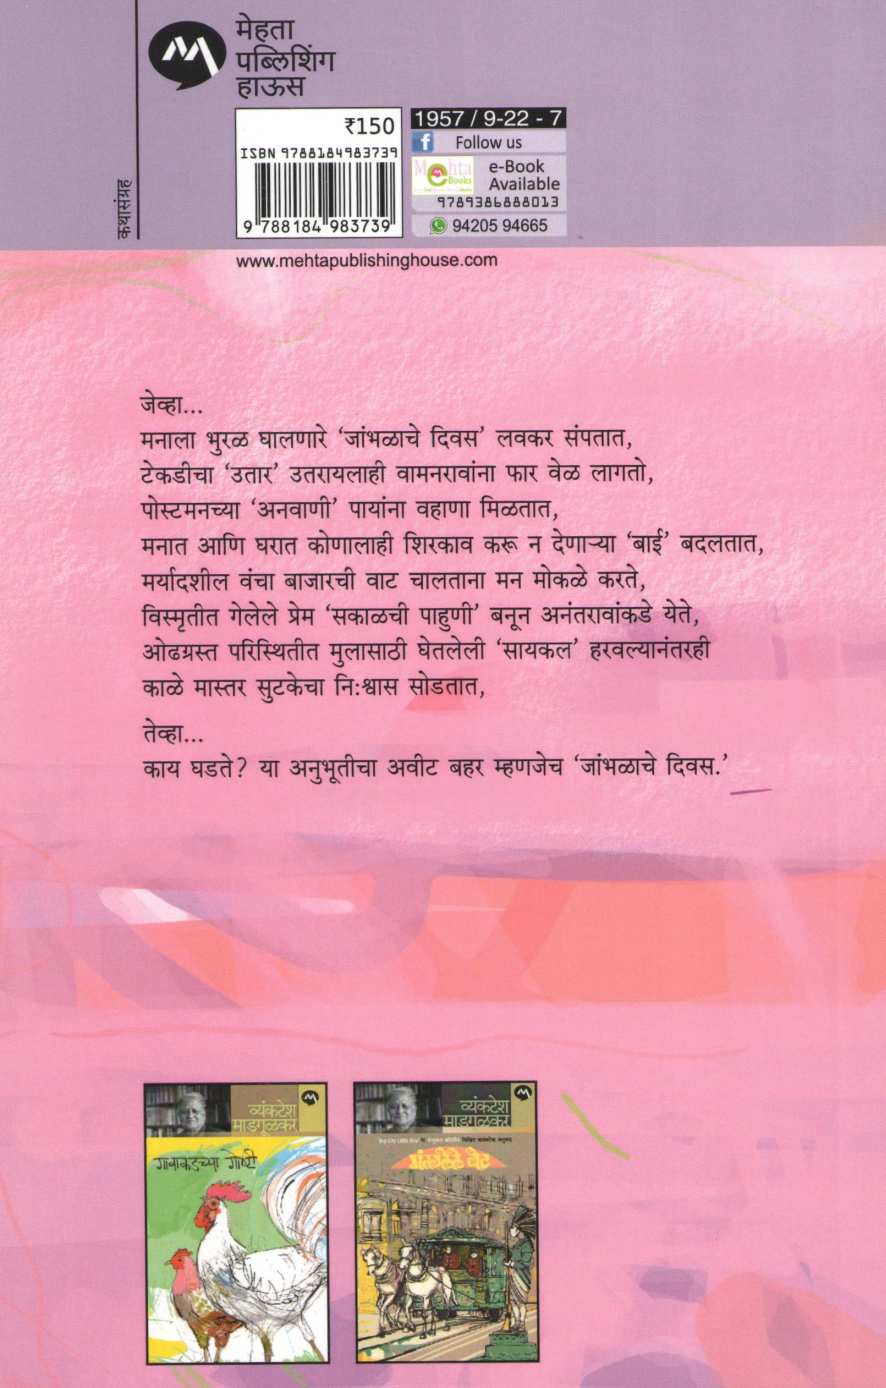 मेहता
पब्लिशिंग
हाऊस
कथासंग्रह
₹150
ISBN 9788184983739
9 788184 983739
1957 / 9-22 - 7
Follow us
Mehta
Books
e-Book
Available
9789386888013
94205 94665
www.mehtapublishinghouse.com
जेव्हा...
मनाला भुरळ घालणारे ‘जांभळाचे दिवस’ लवकर संपतात,
टेकडीचा ‘उतार’ उतरायलाही वामनरावांना फार वेळ लागतो,
पोस्टमनच्या ‘अनवाणी’ पायांना वहाणा मिळतात,
मनात आणि घरात कोणालाही शिरकाव करू न देणाऱ्या ‘बाई’ बदलतात,
मर्यादशील वंचा बाजारची वाट चालताना मन मोकळे करते,
विस्मृतीत गेलेले प्रेम ‘सकाळची पाहुणी’ बनून अनंतरावांकडे येते,
ओढग्रस्त परिस्थितीत मुलासाठी घेतलेली ‘सायकल’ हरवल्यानंतरही
काळे मास्तर सुटकेचा नि:श्वास सोडतात,
तेव्हा...
काय घडते? या अनुभूतीचा अवीट बहर म्हणजेच ‘जांभळाचे दिवस.’
व्यंकटेश
माडगूळकर
गावाकडच्या गोष्टी
व्यंकटेश
माडगूळकर
मंतरलेले बेट